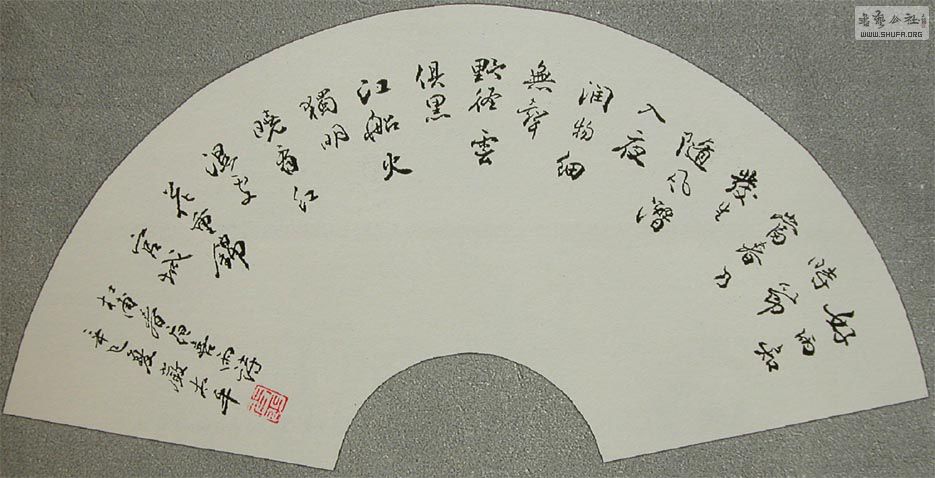 好雨知
時節
當春乃
發生
隨风潛
入夜
润物细
無聲
野径雲
俱黑
江船火
獨明
曉看红
濕處
花重錦
官城
杜甫春夜喜雨詩
辛巳夏
書藝公社
WWW.SHUFA.ORG